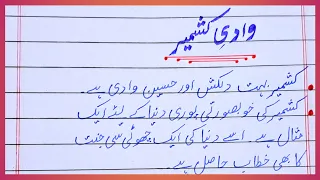 وادیِ کشمیر
کشمیر بہت دلکش اور حسین وادی ہے۔
کشمیر کی خوبصورتی پوری دنیا کے لئے ایک
مثال ہے۔ اسے دنیا کی ایک چھوٹی سی جنت
کا بھی خطاب حاصل ہے۔